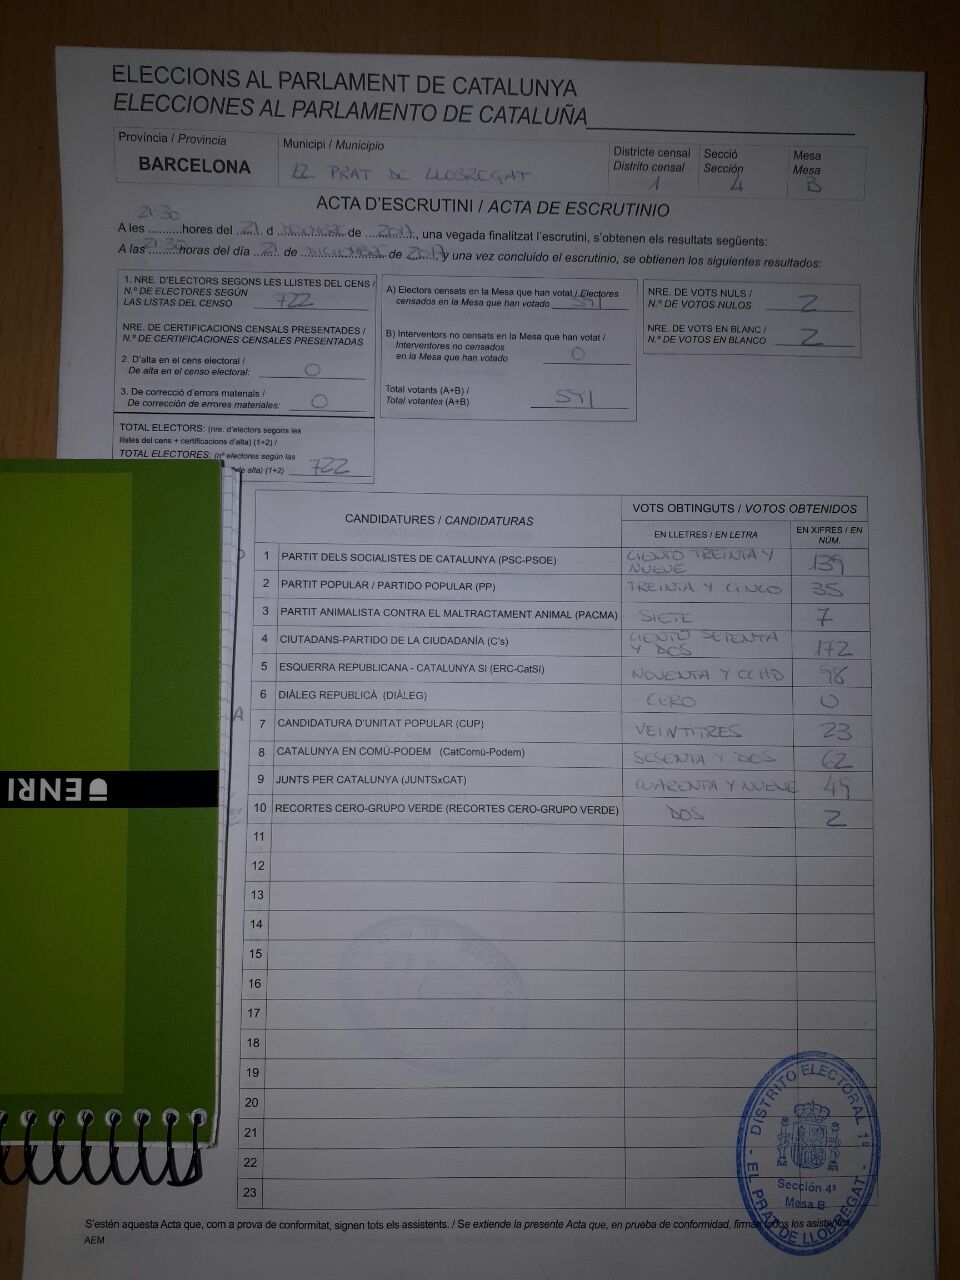 ELECCIONS AL PARLAMENT DE CATALUNYA
ELECCIONES AL PARLAMENTO DE CATALUÑA
Província / Provincia
BARCELONA
Municipi / Municipio
EL PRAT DE LLOBREGAT
Districte censal
Distrito censal
1
Secció
Sección
4
Mesa
Mesa
B
ACTA D'ESCRUTINI / ACTA DE ESCRUTINIO
21:30
A les ..........hores del ..21.. d .................. de ..2017.., una vegada finalitzat l'escrutini, s'obtenen els resultats següents:
A las ..21:30..horas del día ..21.. de ..DICIEMBRE.. de ..2017.., y una vez concluido el escrutinio, se obtienen los siguientes resultados:
1. NRE. D'ELECTORS SEGONS LES LLISTES DEL CENS /
N.º DE ELECTORES SEGÚN
LAS LISTAS DEL CENSO 722
NRE. DE CERTIFICACIONS CENSALS PRESENTADES /
N.º DE CERTIFICACIONES CENSALES PRESENTADAS
2. D'alta en el cens electoral /
De alta en el censo electoral: 0
3. De correcció d'errors materials /
De corrección de errores materiales: 0
TOTAL ELECTORS: (nre. d'electors segons les
llistes del cens + certificacions d'alta) (1+2) /
TOTAL ELECTORES: (nº electores según las
de alta) (1+2) 722
A) Electors censats en la Mesa que han votat / Electores
censados en la Mesa que han votado 591
B) Interventors no censats en la Mesa que han votat /
Interventores no censados
en la Mesa que han votado 0
Total votants (A+B) /
Total votantes (A+B) 591
NRE. DE VOTS NULS /
N.º DE VOTOS NULOS 2
NRE. DE VOTS EN BLANC /
N.º DE VOTOS EN BLANCO 2
CANDIDATURES / CANDIDATURAS
VOTS OBTINGUTS / VOTOS OBTENIDOS
EN LLETRES / EN LETRA
EN XIFRES / EN
NÚM.
1 PARTIT DELS SOCIALISTES DE CATALUNYA (PSC-PSOE) CIENTO TREINTA Y
NUEVE 139
2 PARTIT POPULAR / PARTIDO POPULAR (PP) TREINTA Y CINCO 35
3 PARTIT ANIMALISTA CONTRA EL MALTRACTAMENT ANIMAL (PACMA) SIETE 7
4 CIUTADANS-PARTIDO DE LA CIUDADANÍA (C's) CIENTO SETENTA
Y DOS 172
5 ESQUERRA REPUBLICANA - CATALUNYA SI (ERC-CatSí) NOVENTA Y OCHO 98
6 DIÀLEG REPUBLICÀ (DIÀLEG) CERO 0
7 CANDIDATURA D'UNITAT POPULAR (CUP) VEINTITRES 23
8 CATALUNYA EN COMÚ-PODEM (CatComú-Podem) SESENTA Y DOS 62
9 JUNTS PER CATALUNYA (JUNTSxCAT) CUARENTA Y NUEVE 49
10 RECORTES CERO-GRUPO VERDE (RECORTES CERO-GRUPO VERDE) DOS 2
11
12
13
14
15
16
17
18
19
20
21
22
23
ENRI
DISTRITO ELECTORAL 1º
Sección 4ª
Mesa B
- EL PRAT DE LLOBREGAT -
S'estén aquesta Acta que, com a prova de conformitat, signen tots els assistents. / Se extiende la presente Acta que, en prueba de conformidad, firman todos los asistentes.
AEM